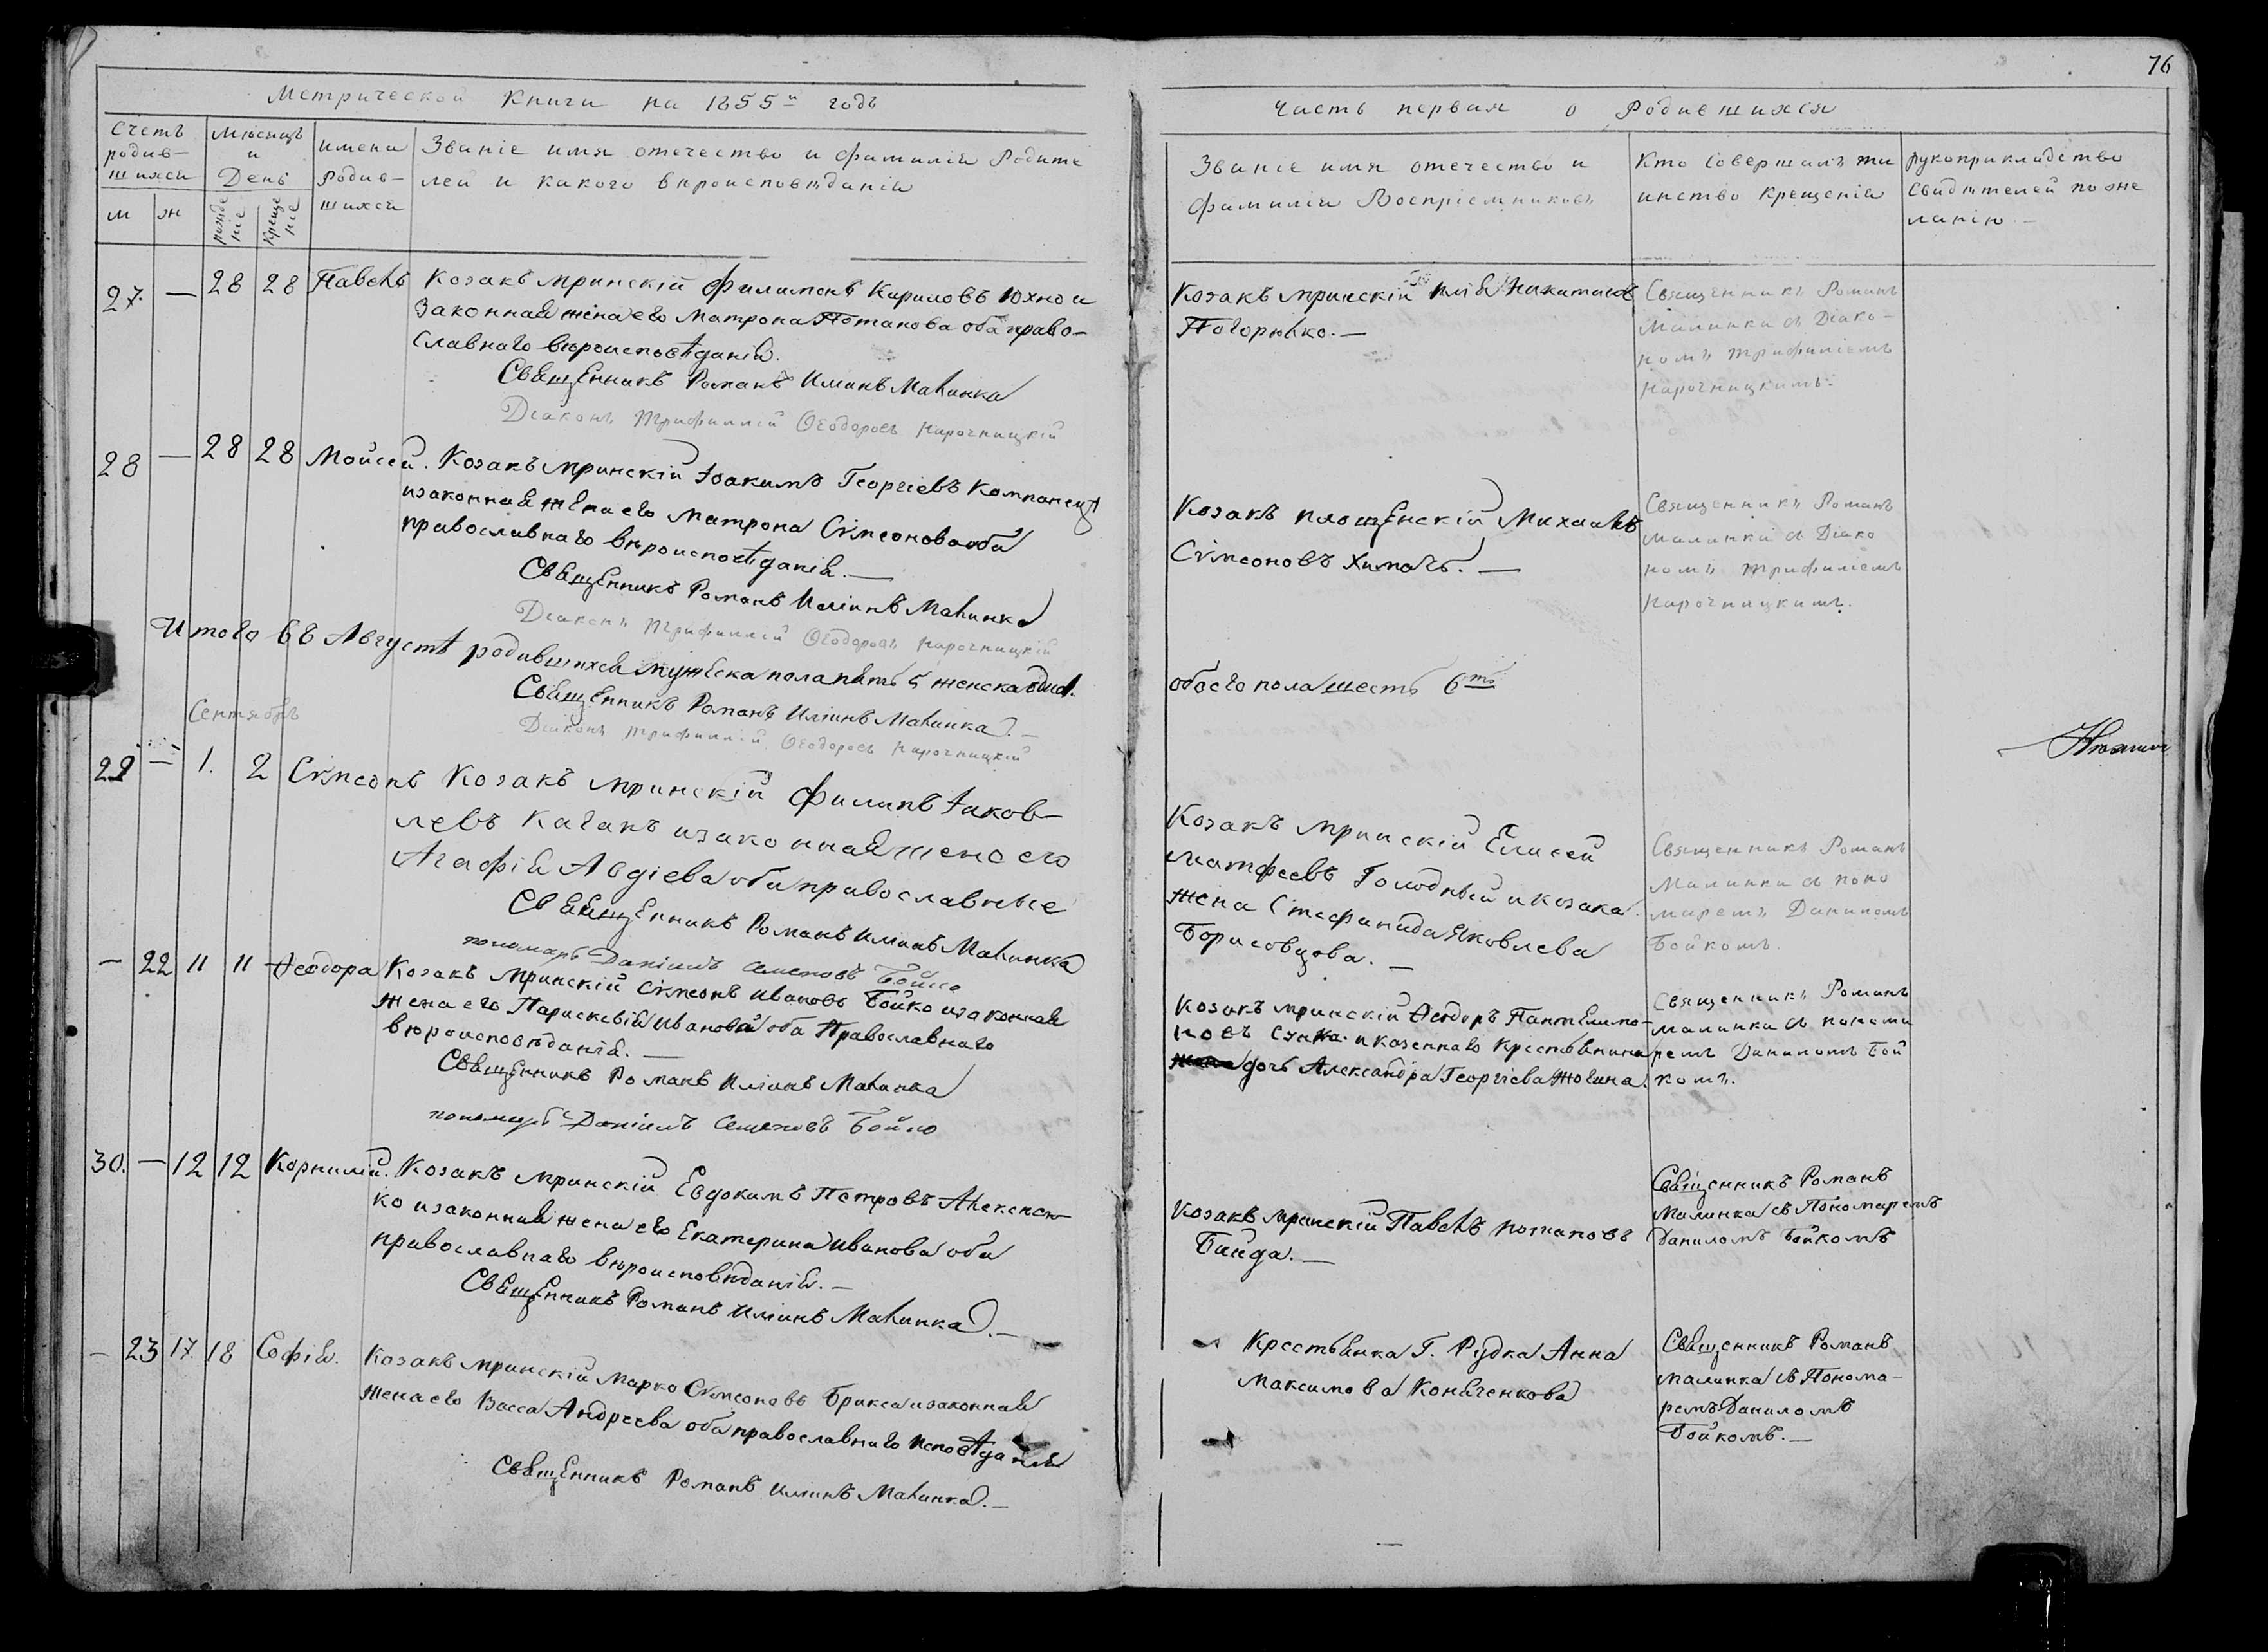 76
Метрической Книги на 1855й годъ
Счетъ родив-
шихся
м ж
Мѣсяцъ
и
День
рожде
ніе
Креще
ніе
имена
Родив-
шихся
Званіе имя отечество и фамилія Родите
лей и какого вѣроисповѣданія
27. — 28 28 Павелъ Козакъ мринскій Филимонъ Кириловъ Юхно и
Законная жена его Матрона Потапова оба право-
славнаго вѣроисповѣданія.
Священникъ Романъ Иліинъ Малинка
Діаконъ Трифиллій Ѳеодоровъ Нарочницкій
28 — 28 28 Мойсей. Козакъ мринскій Іоакимъ Георгіевъ Компанецъ
и законная жена его Матрона Сѵмеонова оба
православнаго вѣроисповѣданія. —
Священникъ Романъ Иліинъ Малинка
Діаконъ Трифиллій Ѳеодоровъ Нарочницкій
Итого въ Августѣ родившихся мужеска пола пять 5 женска одна.
Священникъ Романъ Иліинъ Малинка. —
Діаконъ Трифиллій Ѳеодоровъ Нарочницкій
Сентябрь
— 1. 2 Сѵмеонъ Козакъ мринскій Филипъ Іаков-
левъ Качанъ и законная жена его
Агафія Авдіева оба православные
Священникъ Романъ Иліинъ Малинка
пономарь Даніилъ Семеновъ Бойко
— 22 11 11 Ѳеодора Козакъ мринскій Сѵмеонъ Ивановъ Бойко и законная
жена его Параскевія Иванова оба Православнаго
вѣроисповѣданія. —
Священникъ Романъ Иліинъ Малинка
пономарь Даніилъ Семеновъ Бойко
30. — 12 12 Корнилій. Козакъ мринскій Евдокимъ Петровъ Алексеен-
ко и законная жена его Екатерина Иванова оба
православнаго вѣроисповѣданія. —
Священникъ Романъ Иліинъ Малинка. —
— 23 17. 18 Софія. Козакъ мринскій Марко Сѵмеоновъ Брикса и законная
жена его Васса Андреева оба православнаго исповѣданія
Священникъ Романъ Иліинъ Малинка. —
Часть первая о Родившихся
Званіе имя отечество и
фамилія Воспріемниковъ
Кто совершалъ та
инство Крещенія
рукоприкладство
Свидѣтелей по же
ланію —
Козакъ мринскій Никитинъ
Погорѣлко. —
Священникъ Романъ
Малинка съ Діако-
номъ Трифиліемъ
Нарочницкимъ.
Козакъ площенскій Михаилъ
Сѵмеоновъ Химачъ. —
Священникъ Романъ
Малинка съ Діако
номъ Трифиліемъ
Нарочницкимъ.
обоего пола шесть 6ть
Козакъ мринскій Елисей
Матфеевъ Голодный и козака
жена Стефанида Яковлева
Борисовцова. —
Священникъ Романъ
Малинка съ поно
маремъ Даниломъ
Бойкомъ.
Козакъ мринскій Ѳеодоръ Пантелимо-
новъ и казеннаго Крестьянина
дочь Александра Георгіева
Священникъ Романъ
Малинка съ понома
ремъ Даниломъ Бой
комъ.
Козакъ мринскій Павелъ Потаповъ
Байда. —
Священникъ Романъ
Малинка съ Пономаремъ
Даниломъ Бойкомъ
Крестьянка Г. Рудка Анна
Максимова Коняченкова
Священникъ Романъ
Малинка съ Понома-
ремъ Даниломъ
Бойкомъ. —